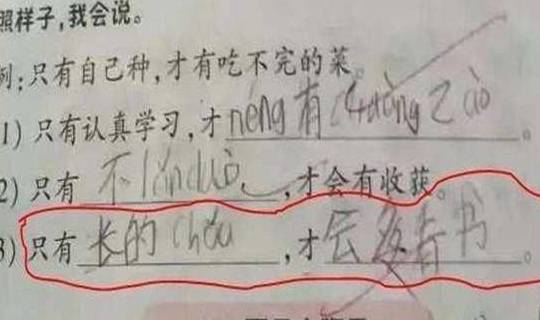 照样子,我会说。
例:只有自己种,才有吃不完的菜。
1) 只有认真学习,才neng有chuàng Zào。
2) 只有不lǎn duò,才会有收获。
3) 只有长的chǒu,才会多看书。